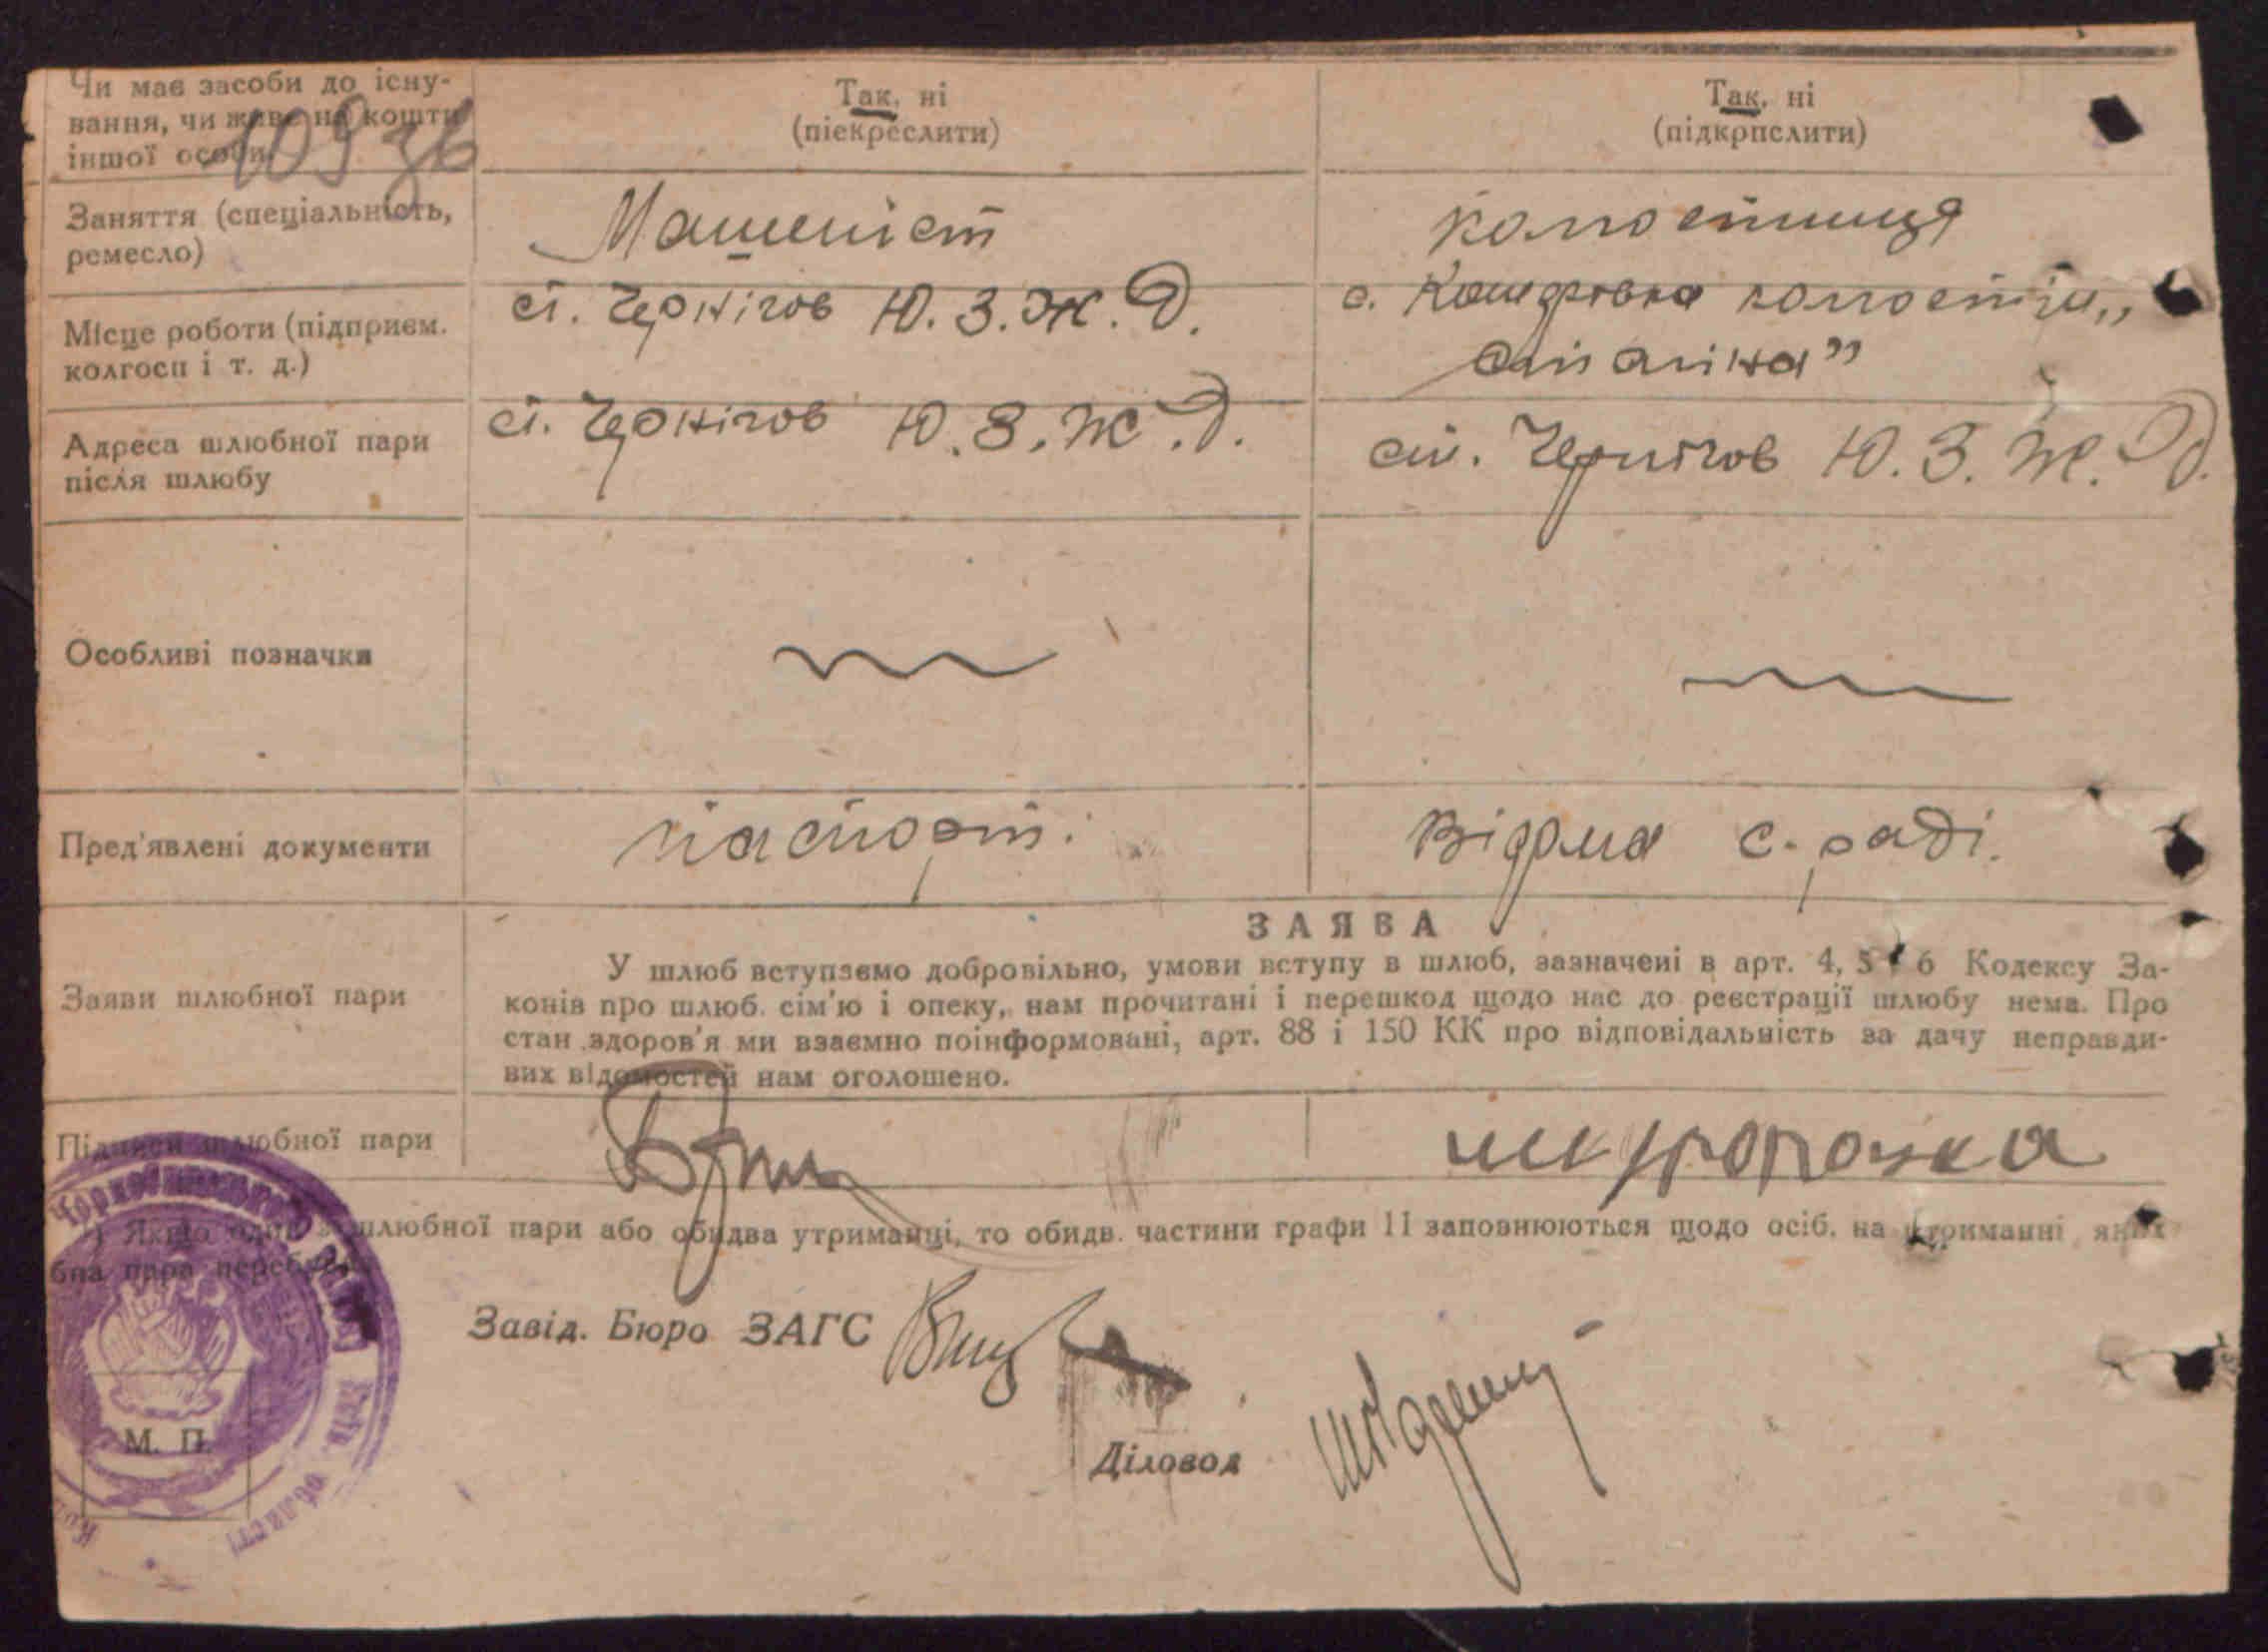 Чи має засоби до існу-
вання, чи живе на кошти
іншої особи
109 зв
Так, ні
(піекреслити)
Так, ні
(підкрпслити)
Заняття (спеціальність,
ремесло)
Машеніст
Місце роботи (підприєм.
колгосп і т. д.)
ст. Чернігов Ю. З. Ж. Д.
с.
сталіна”
Адреса шлюбної пари
після шлюбу
ст. Чернігов Ю. З. Ж. Д.
ст. Чернігов Ю. З. Ж. Д.
Особливі позначки
Пред'явлені документи
паспорт.
с. раді.
Заяви шлюбної пари
ЗАЯВА
У шлюб вступаємо добровільно, умови вступу в шлюб, зазначені в арт. 4, 5 і 6 Кодексу За-
конів про шлюб. сім'ю і опеку, нам прочитані і перешкод щодо нас до реєстрації шлюбу нема. Про
стан здоров'я ми взаємно поінформовані, арт. 88 і 150 КК про відповідальність за дачу неправди-
вих відомостей нам оголошено.
Підписи шлюбної пари
) Якщо один з шлюбної пари або обидва утриманці, то обидв. частини графи 11 заповнюються щодо осіб. на утриманні яких
бна пара перебуває
Завід. Бюро ЗАГС
Діловод
М. П.
області